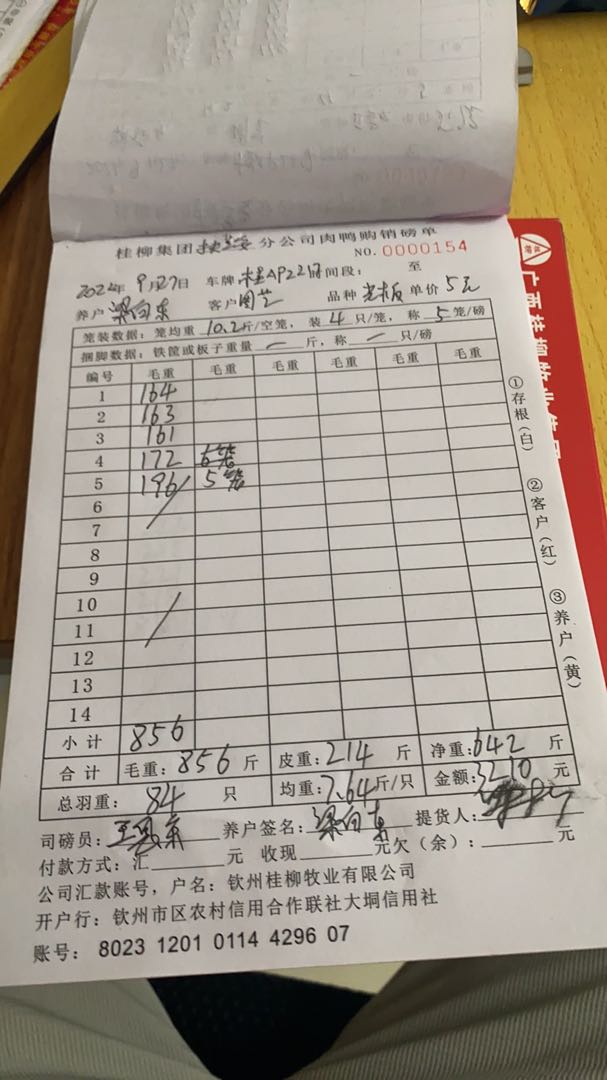 桂柳集团 分公司肉鸭购销磅单
NO. 0000154
2022年 9月27日 车牌 桂AP22 时间段: 至
养户 梁向东 客户 国艺 品种 光板 单价 5元
笼装数据:笼均重 10.2斤/空笼,装 4 只/笼,称 5 笼/磅
捆脚数据:铁筐或板子重量 一 斤,称 一 只/磅
编号 毛重 毛重 毛重 毛重 毛重 毛重
1 164
2 163
3 161
4 172 6笼
5 196 5笼
6
7
8
9
10
11
12
13
14
小计 856
合计 毛重:856 斤 皮重:214 斤 净重:642 斤
总羽重: 84 只 均重:7.64斤/只 金额:3210 元
司磅员: 养户签名:梁向东 提货人:
付款方式:汇 元 收现 元欠(余): 元
公司汇款账号,户名:钦州桂柳牧业有限公司
开户行:钦州市区农村信用合作联社大垌信用社
账号: 8023 1201 0114 4296 07
①存根(白)
②客户(红)
③养户(黄)